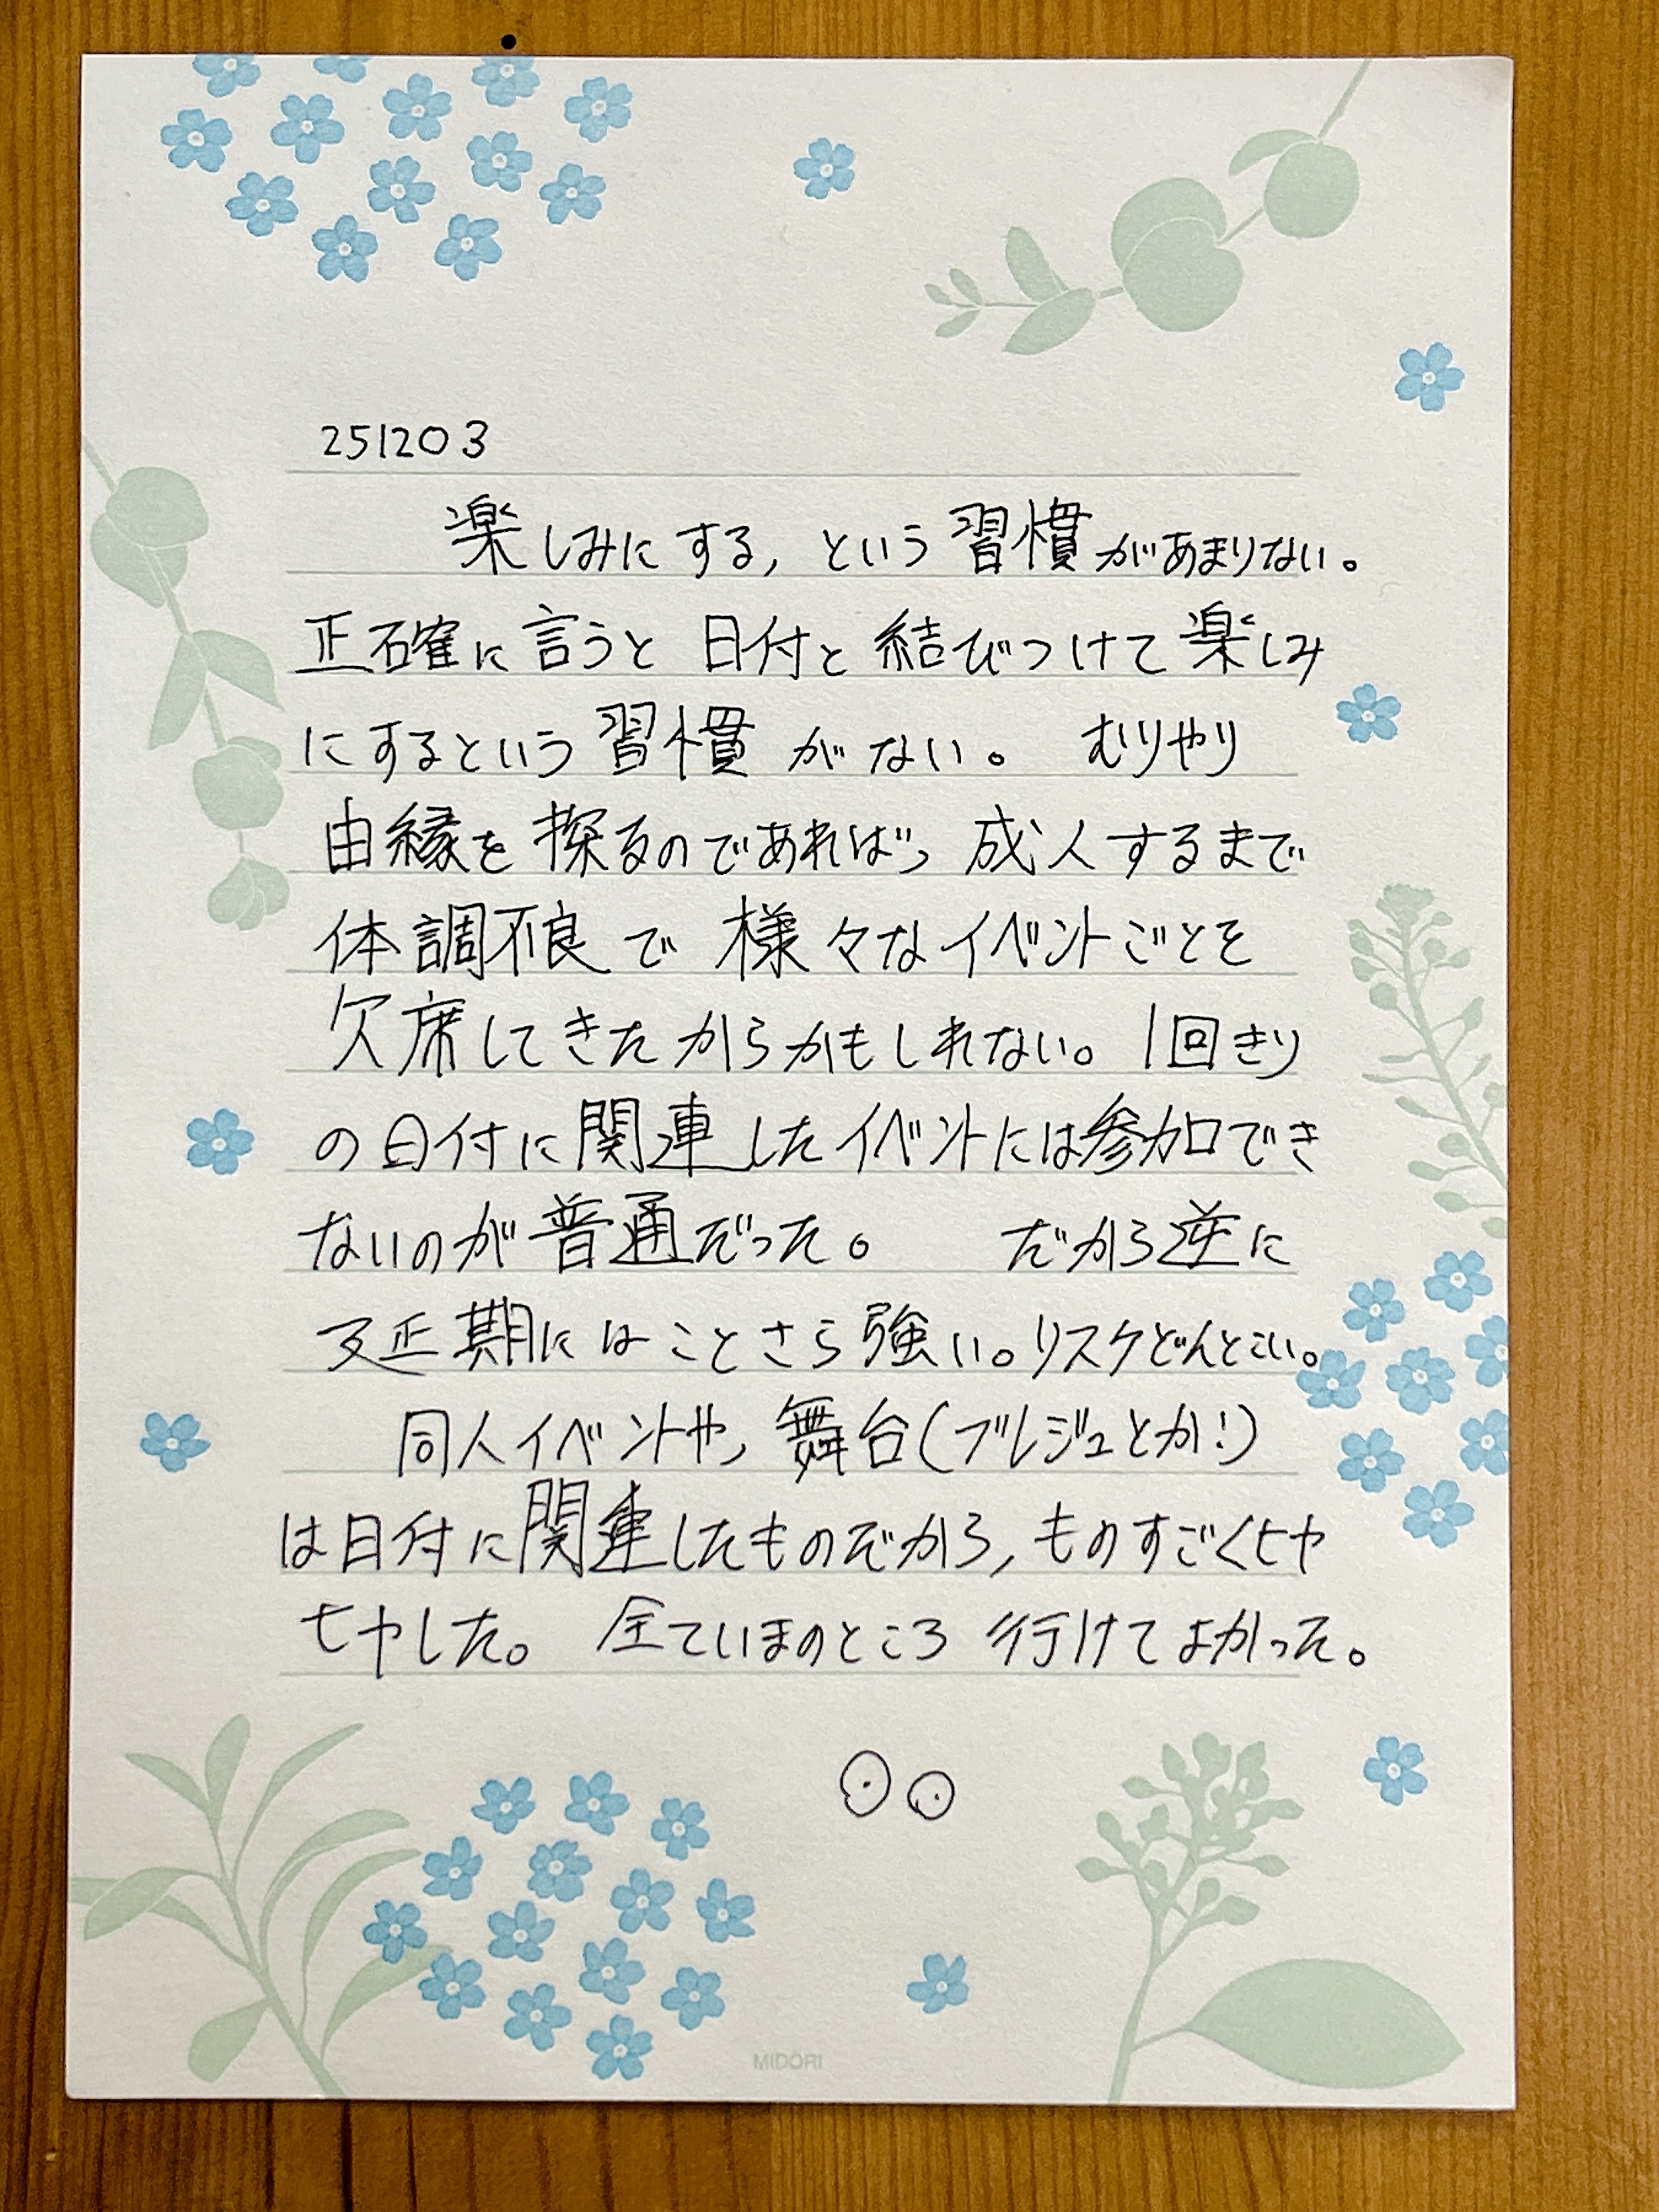 251203
楽しみにする, という習慣があまりない。
正確に言うと 日付と結びつけて楽しみ
にするという習慣がない。 むりやり
由縁を探るのであれば、成人するまで
体調不良で様々なイベントごとを
欠席してきたからかもしれない。1回きり
の日付に関連したイベントには参加でき
ないのが普通だった。 だから逆に
延期にはことさら強い。リスケどんとこい。
同人イベントや、舞台(ブルジュとか!)
は日付に関連したものだから, ものすごくヒヤ
ヒヤした。 全ていまのところ 行けてよかった。
MIDORI